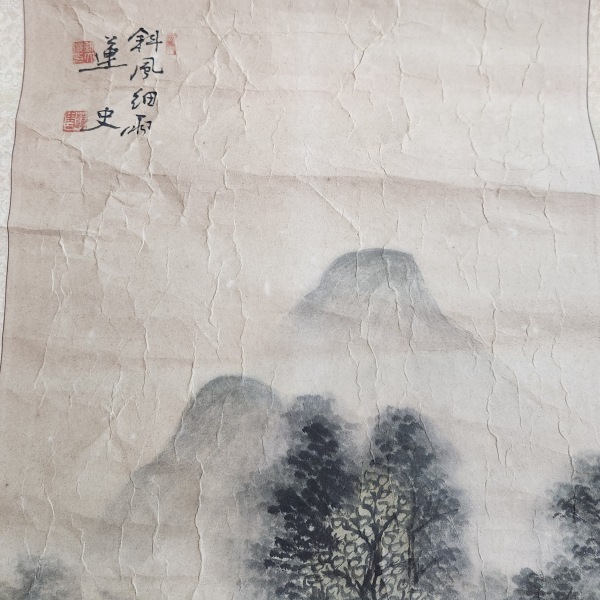 斜風細雨
蓮史